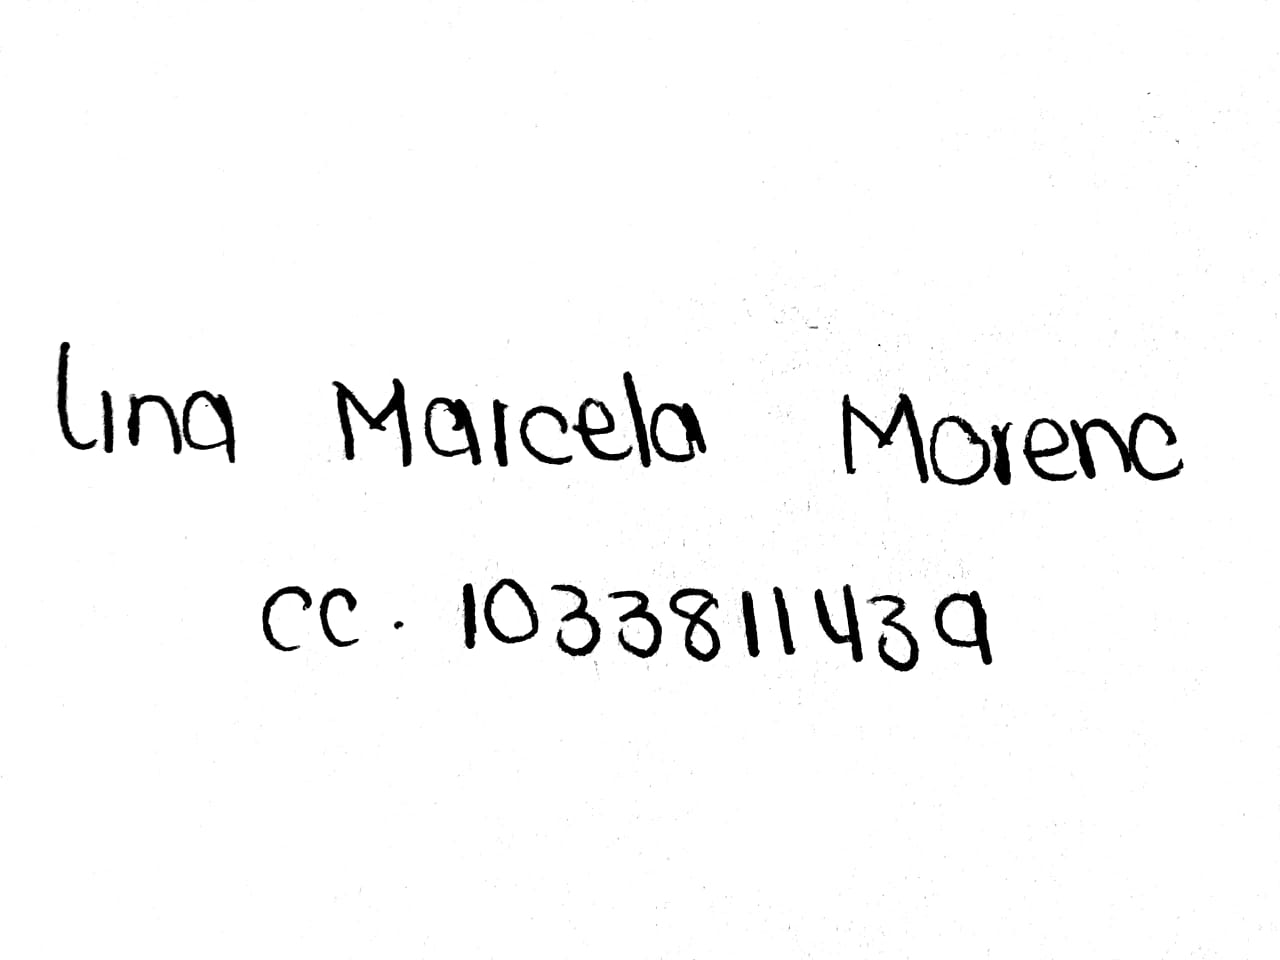 Lina Marcela Moreno
CC. 1033811439